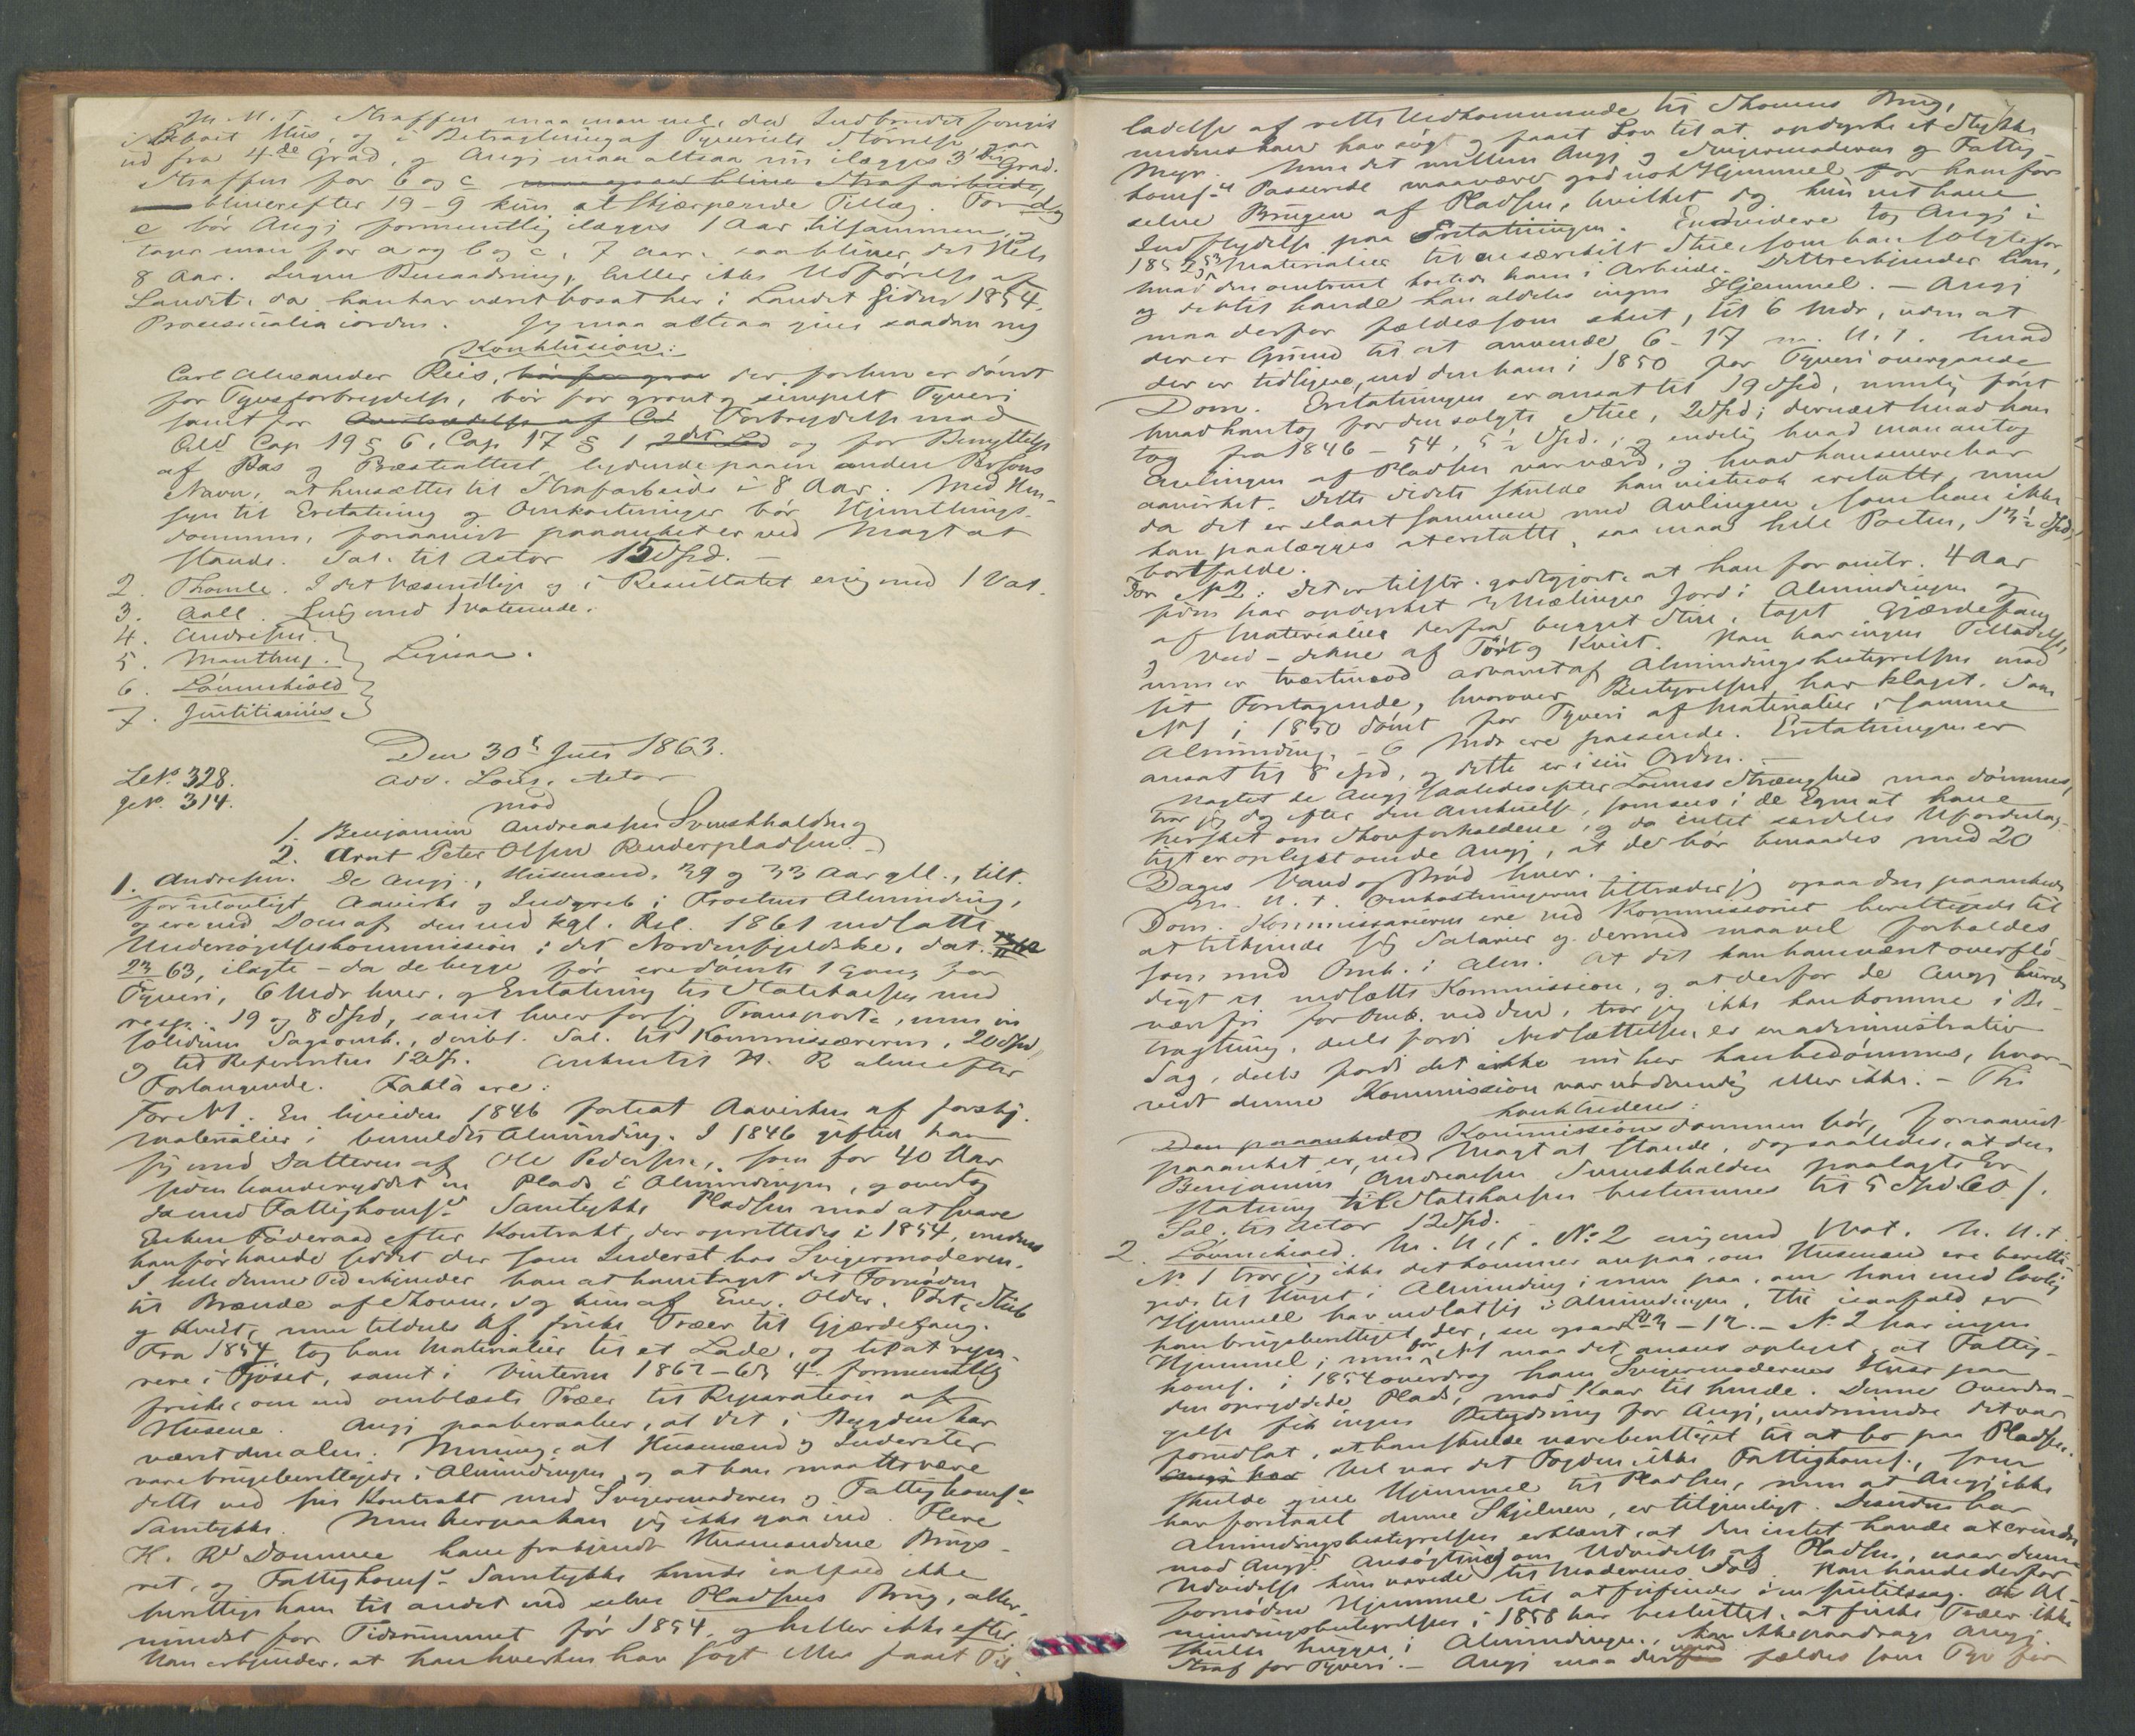 M. M. T. Straffen maa man vel, da Indbrudet foregik
i beboet Hus, og i Betragtning af Tyveriets Størrelse, gaa
ud fra 4de Grad, og Angj maa altsaa nu ilægges 3die Grad.
Straffen for b og c maa ogsaa blive Strafarbeide
bliver efter 19-9 kun et skjærpende Tillæg. For d og
e bør Angj formentlig ilægges 1 Aar tilsammen, og
tager man for a og b og c, 7 Aar, saa bliver det Hele
8 Aar. Ingen Benaadning, heller ikke Udførelse af
Landet, da han har været bosat her i Landet siden 1854.
Processualia iorden. Jeg maa altsaa give saadan
Konklusion:
Carl Alexander Reis, bør for grov der forhen er dømt
for Tyvsforbrydelse, bør for grovt og simpelt Tyveri
samt for Overtrædelse af Cri Forbrydelse mod
Cap 19 § 6, Cap 17 § 1 2det Led og for Benyttelse
af Pas og Præsteattest, lydende paa en anden Persons
Navn, at hensættes til Strafarbeide i 8 Aar. Med Hen-
syn til Erstatning og Omkostninger bør Hjemtings-
dommen, forsaavidt paaanket er ved Magt at
stande. Sal. til Actor 15 Spd. -
2. Thomle. I det Væsentlige og i Resultatet enig med 1 Vot.
3. Aall. Enig med 1 voterende.
4. Andresen.
5. Manthey. Ligesaa.
6. Løvenskiold
7. Justitiarius
Den 30t Juni 1863.
LNo. 328. Adv. Lous, Actor
No. 314. mod
1. Benjamin Andreassen Svenskhalden og
2. Arnt Peter Olsen Renderpladsen.
1. Andresen. De Angj., Husmænd, 39 og 33 Aar gll., tilt.
for ulovligt Aavirke og Indgreb i Frostens Almending,
og ere ved Dom af den ved kgl. Res. 1861 nedsatte
Undersøgelseskommission i det Nordenfjeldske, dat.
23 63, ilagte - da de begge før ere dømte 1 Gang for
Tyveri, 6 Mdr hver, og Erstatning til Statskassen med
resp. 19 og 8 Spd, samt hver for sig Transportn, men in
solidum Sagsomk., deribl. Sal. til Kommissærerne, 20 Spd,
og til Referenten 12 Sp. Anket til H. R alene efter
Forlangende. Fakta ere:
For N1. En ligesiden 1846 fortsat Aavirken af forskj.
Materialier i bemeldte Almending. I 1846 giftede han
sig med Datteren af Ole Pedersen, som for 40 Aar
siden havde ryddet en Plads i Almendingen, og overtog
da med Fattigkoms- Samtykke Pladsen mod at svare
Enken Føderaad efter Kontrakt, der oprettedes i 1854, medens
han før havde siddet der som Inderst hos Svigermoderen.
I hele denne Tid erkjender han at have taget det Fornødne
til Brænde af Skoven, dog kun af Ener, Older, Tørt, Stub
og Kvist, men tildels af friske Træer til Gjærdefang.
Fra 1854 tog han Materialier til et Lade, og til at repa-
rere i Fjøset, samt i Vinteren 1862-63 4 formentlig
friske, om end omblæste Træer til Reparation af
Husene. Angj paaberaaber, at det i Bygden har
været den alm. Mening, at Husmænd og Inderster
vare brugsberettigede i Almendingen, og at han maatte være
dette ved sin Kontrakt med Svigermoderen og Fattigkoms-
Samtykke. Men herpaa kan jeg ikke gaa ind. Flere
H. R's Domme have frakjendt Husmændene Brugs-
ret, og Fattigkoms- Samtykke kunde ialfald ikke
berettige ham til andet end selve Pladsens Brug, aller-
mindst for Tidsrummet før 1854, og heller ikke efter.
Han erkjender, at han hverken har søgt eller faaet Til-
ladelse af rette Vedkommende til Skovens Brug,
medens han har søgt og faaet Lov til at opdyrke et Stykke
Myr. Men det mellem Angj og Svigermoderen og Fattig-
koms- Passerede maa være god nok Hjemmel for ham for
selve Brugen af Pladsen, hvilket dog kun vil have
Indflydelse paa Erstatningen. Endvidere tog Angj i
1852-53 Materialier til en særskilt Stue, som han solgte for
hvad den omtrent kostede ham i Arbeide. Dette erkjender han,
og dertil havde han aldeles ingen Hjemmel. - Angj
maa derfor fældes som skeet, til 6 Mdr, uden at
der er Grund til at anvende 6-17 m. M. t. hvad
der er tidligere, end den ham i 1850 for Tyveri overgaaede
Dom. Erstatningen er ansat til 19 Spd, nemlig først
hvad han tog for den solgte Stue, 2 Spd; dernæst hvad han
tog fra 1846-54, 5½ Spd.; og endelig hvad man antog
Avlingen af Pladsen var værd, og hvad han senere har
aavirket. Dette sidste skulde han vistnok erstatte, men
da det er slaaet sammen med Avlingen, som han ikke
kan paalægges at erstatte, saa maa hele Posten, 13½ Spd,
bortfalde.
For N2: Det er tilstr. godtgjort, at han for omtr. 4 Aar
siden har opdyrket 3 Mælinger Jord i Almendingen og
af Materialier derfra bygget Stue, taget Gjærdefang
og Ved - denne af Tørt og Kvist. Han har ingen Tilladelse,
men er tvertimod advaret af Almendingsbestyrelsen mod
sit Foretagende, hvorover Bestyrelsen har klaget. Som
N1 i 1850 dømt for Tyveri af Materialier i samme
Almending. - 6 Mdr ere passende. Erstatningen er
ansat til 8 Spd, og dette er i sin Orden. -
Uagtet de Angj saaledes efter Lovens Strenghed maa dømmes,
tror jeg dog efter den Anskuelse, som sees i de Egne at have
hersket om Skovforholdene, og da intet særdeles Ufordelag-
tigt er oplyst om de Angj, at de bør benaades med 20
Dages Vand og Brød hver. -
M. H. t. Omkostningerne tiltræder jeg ogsaa den paaankede
Dom. Kommissærerne ere ved Kommissoriet berettigede til
at tilkjende sig Salarier og dermed maa vel forholdes
som med Omk. i Alm. At det kan have været overflø-
digt at nedsætte Kommission, og at derfor de Angj burde
være fri for Omk. ved den, tror jeg ikke kan komme i Be-
tragtning, dels fordi Nedsættelsen er en administrativ
Sag, dels fordi det ikke nu her kan bedømmes, hvor-
vidt denne Kommission var nødvendig eller ikke. - Thi
konkluderes:
Den paaankede Kommissionsdommen bør, forsaavidt
paaanket er, ved Magt at stande, dog saaledes, at den
Benjamin Andreassen Svenskhalden paalagte Er-
statning til Statskassen bestemmes til 5 Spd 60 s.
Sal. til Actor 12 Spd.
2. Løvenskiold. M. H. t. No 2 enig med 1 Vot. M. H. t.
No 1 tror jeg ikke det kommer an paa, om Husmænd ere beretti-
gede til Hugst i Almending; men paa, om han med lovlig
Hjemmel har nedsat sig i Almendingen, thi isaafald er
han brugsberettiget der, see ogsaa 3-12. - No 2 har ingen
Hjemmel; men for N1 maa det ansees oplyst, at Fattig-
koms. i 1854 overdrog ham Svigermoderens Huse paa
den opryddede Plads, mod Kaar til hende. Denne Overdra-
gelse fik ingen Betydning for Angj, medmindre det var
forudsat, at han skulde være berettiget til at bo paa Pladsen.
Angj har Vel var det Fogden ikke Fattigkoms., som
skulde give Hjemmel til Pladsen, men at Angj ikke
har forstaaet denne Skjelnen, er tilgiveligt. Desuden har
Almendingsbestyrelsen erklæret, at den intet havde at erindre
mod Angj's Ansøgning om Udvidelse af Pladsen, naar denne
Udvidelse kun varede til Moderens Død. Han havde derfor
fornøden Hjemmel til at frifindes i en Justitssag. At Al-
mendingsbestyrelsen i 1858 har besluttet, at friske Træer ikke
skulde hugges i Almendingen, kan ikke paadrage Angj
Straf for Tyveri. - Angj maa derfor fældes som Tyv for